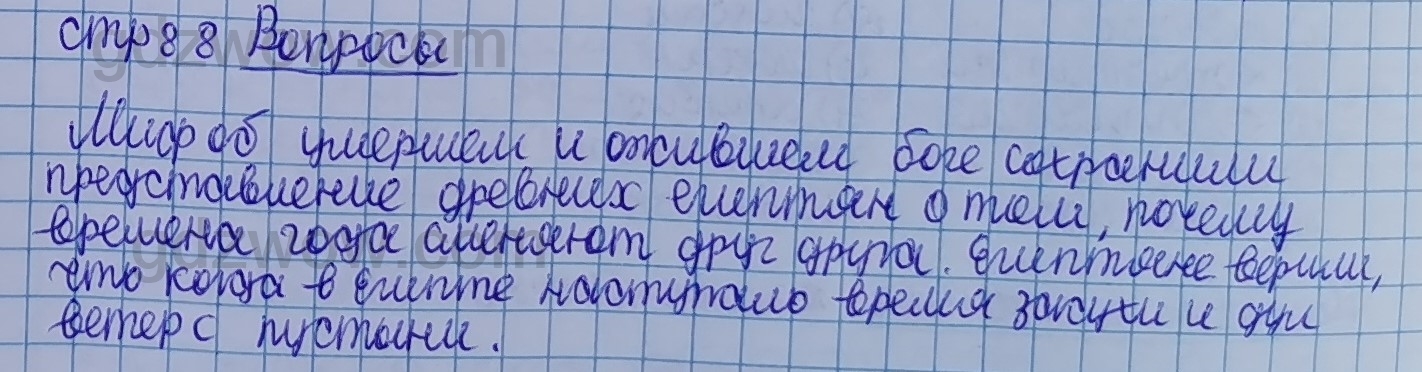 стр 88 Вопросы
Миф об умершем и ожившем боге сохранили
представление древних египтян о том, почему
времена года сменяют друг друга. Египтяне верили,
что когда в Египте наступало время засухи и дул
ветер с пустыни.
gdzwow.com
gdzwow.com